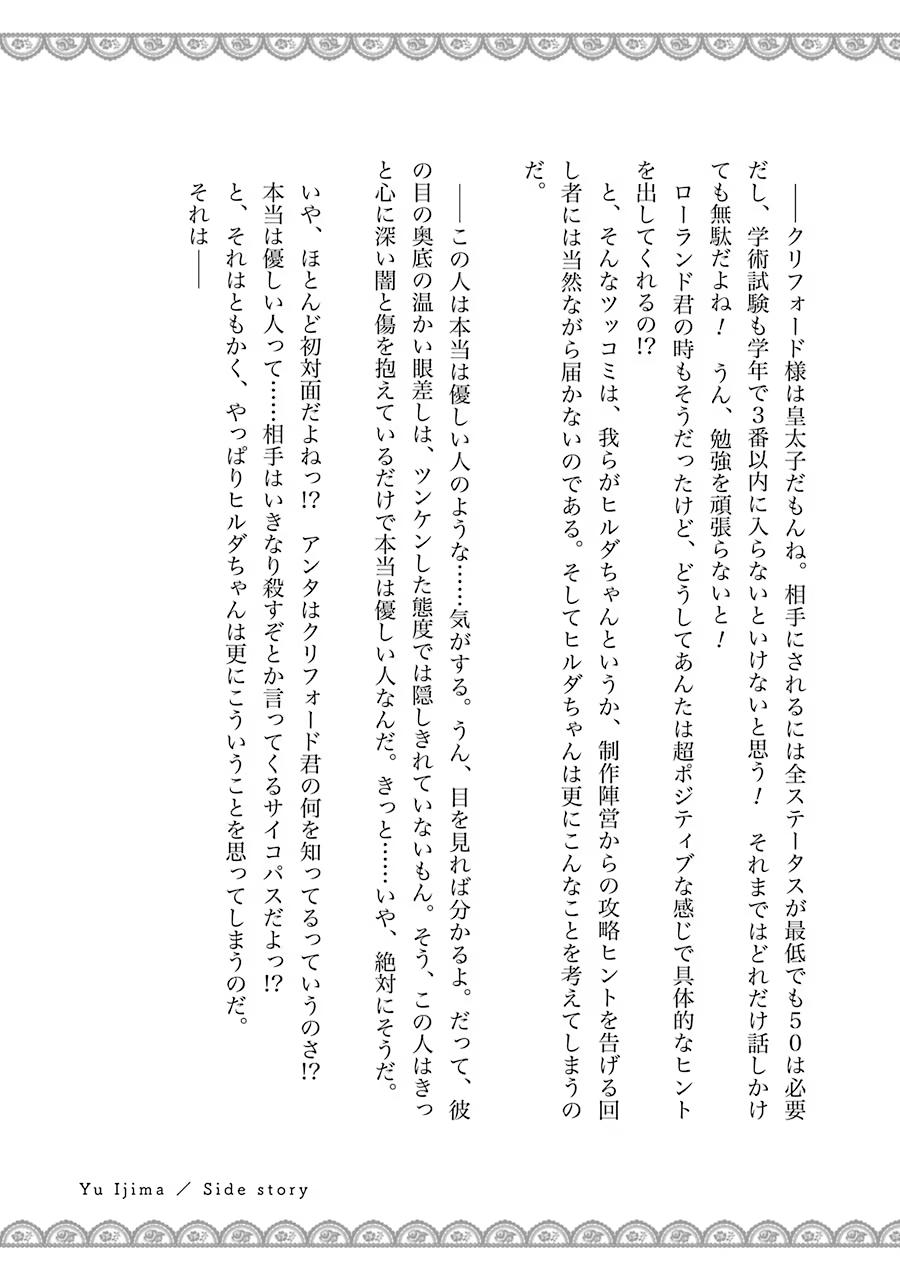 ――クリフォード様は皇太子だもんね。相手にされるには全ステータスが最低でも５０は必要
だし、学術試験も学年で３番以内に入らないといけないと思う！　それまではどれだけ話しかけ
ても無駄だよね！　うん、勉強を頑張らないと！
ローランド君の時もそうだったけど、どうしてあんたは超ポジティブな感じで具体的なヒント
を出してくれるの!?
と、そんなツッコミは、我らがヒルダちゃんというか、制作陣営からの攻略ヒントを告げる回
し者には当然ながら届かないのである。そしてヒルダちゃんは更にこんなことを考えてしまうの
だ。
――この人は本当は優しい人のような……気がする。うん、目を見れば分かるよ。だって、彼
の目の奥底の温かい眼差しは、ツンケンした態度では隠しきれていないもん。そう、この人はきっ
と心に深い闇と傷を抱えているだけで本当は優しい人なんだ。きっと……いや、絶対にそうだ。
いや、ほとんど初対面だよねっ!?　アンタはクリフォード君の何を知ってるっていうのさ!?
本当は優しい人って……相手はいきなり殺すぞとか言ってくるサイコパスだよっ!?
と、それはともかく、やっぱりヒルダちゃんは更にこういうことを思ってしまうのだ。
それは――
Yu Ijima ／ Side story